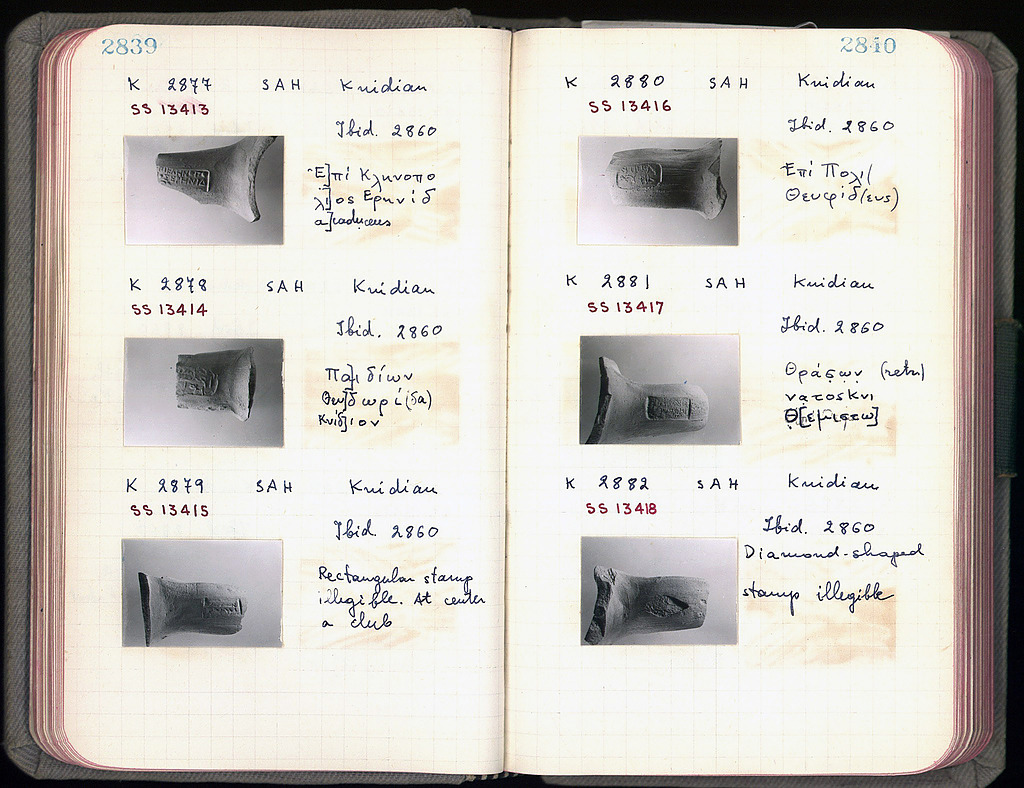 2839
K 2877 SAH Knidian
SS 13413
Ibid. 2860
Ἐ]πί Κληνοπο
λι]ος Ερηνίδ
a]caduceus
K 2878 SAH Knidian
SS 13414
Ibid. 2860
Πα]ιδίων
Θευ]δωρί(δα)
Κνίδ]ιον
K 2879 SAH Knidian
SS 13415
Ibid. 2860
Rectangular stamp
illegible. At center
a club
2840
K 2880 SAH Knidian
SS 13416
Ibid. 2860
Ἐπί Πολι(
Θευφίδ(ευς)
K 2881 SAH Knidian
SS 13417
Ibid. 2860
Θράσων (retr)
νατος Κνι
K 2882 SAH Knidian
SS 13418
Ibid. 2860
Diamond-shaped
stamp illegible